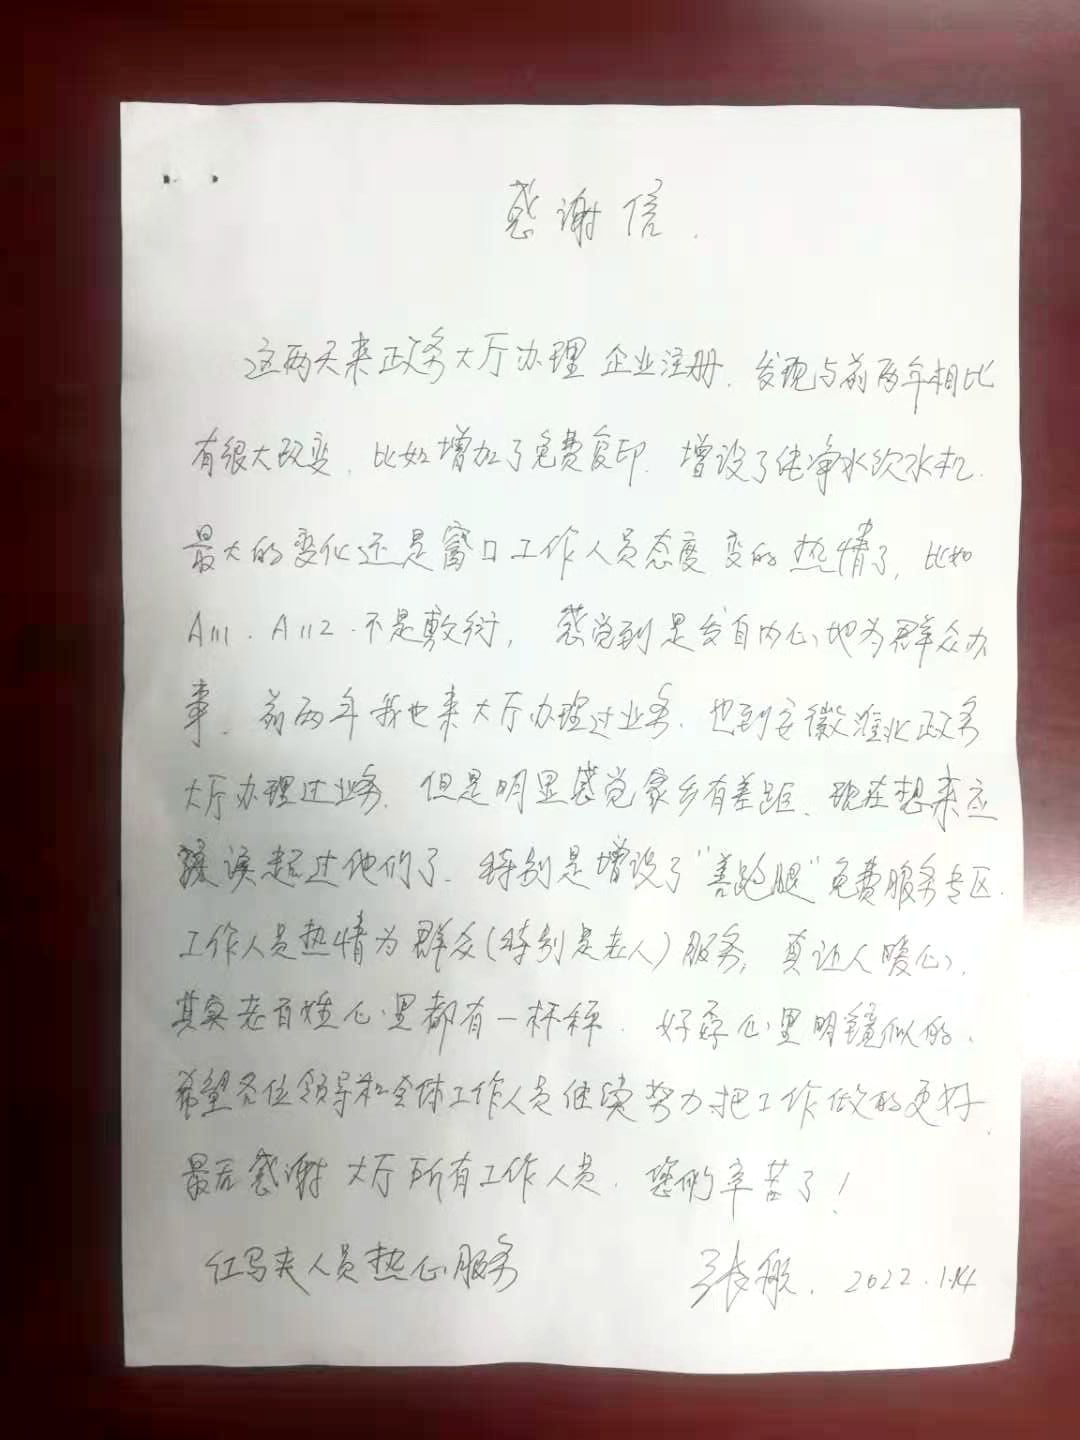 感谢信.
这两天来政务大厅办理企业注册.发现与前两年相比
有很大改变.比如增加了免费复印.增设了纯净水饮水机.
最大的变化还是窗口工作人员态度变的热情了,比如
A111.A112.不是敷衍,感觉到是发自内心地为群众办
事.前两年我也来大厅办理过业务.也到安徽淮北政务
大厅办理过业务.但是明显感觉家乡有差距.现在想来应
该误起过他们了.特别是增设了"善跑腿"免费服务专区.
工作人员热情为群众(特别是老人)服务,真让人暖心.
其实老百姓心里都有一杆秤.好孬心里明镜似的.
希望各位领导和全体工作人员继续努力把工作做的更好.
最后感谢大厅所有工作人员.您们辛苦了!
红马夹人员热心服务
张 . 2022.1.14